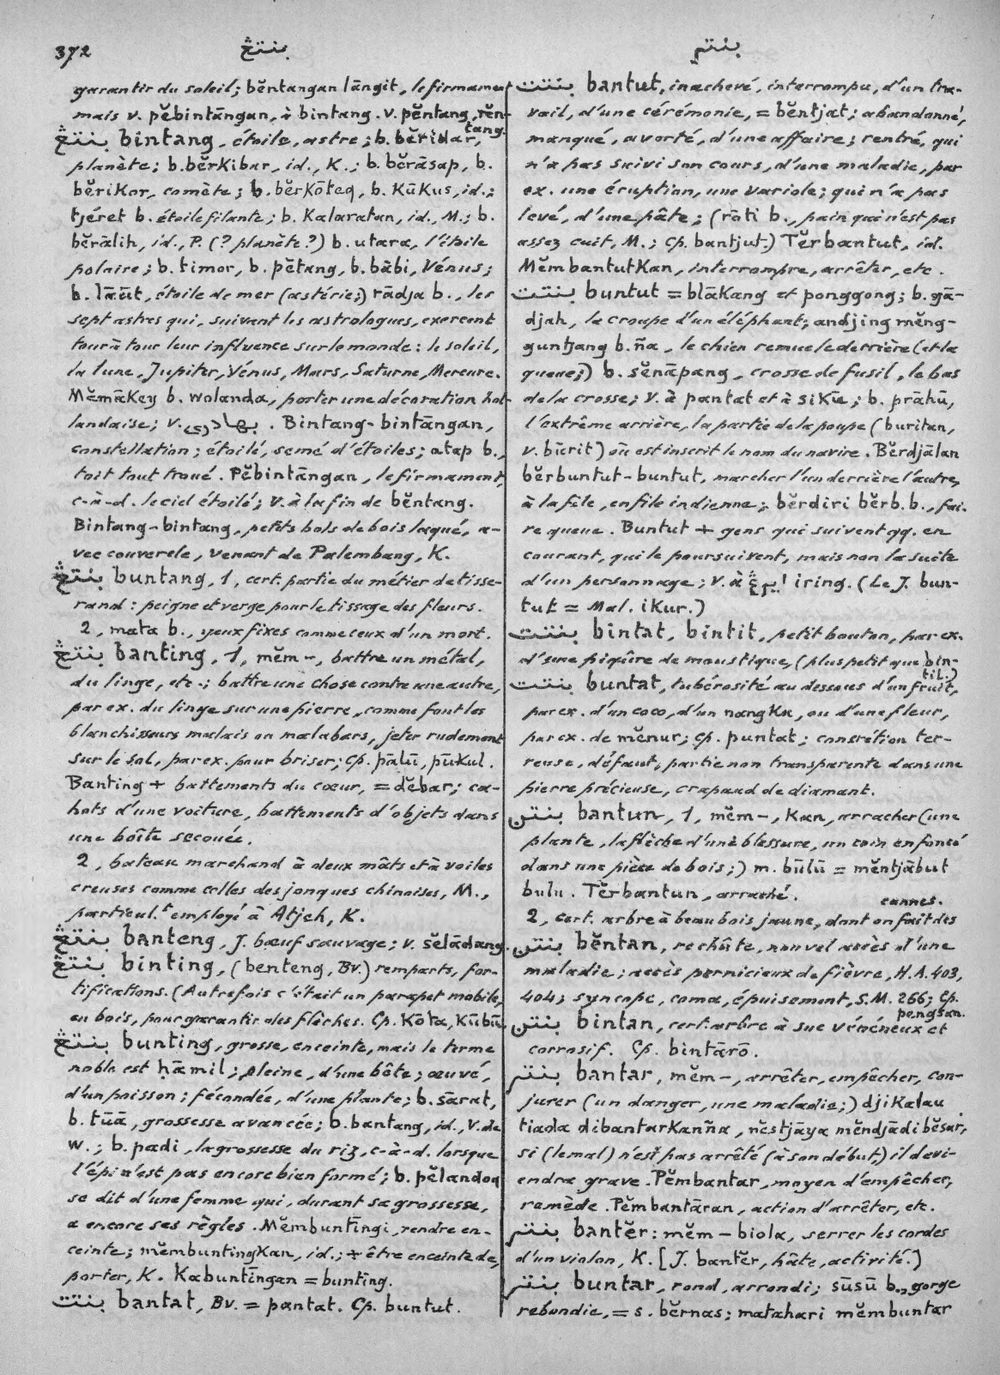 372
بنتڠ
بنتر
garantir du soleil; bĕntangan lāngit, le firmament
mais v. pĕbintāngan, à bintang. v. pĕntang, rĕn-
tang.
بنتڠ bintang, étoile, astre; b. bĕridar,
planète; b. bĕrkibar, id., K.; b. bĕrāsap, b.
bĕrikor, comète; b. bĕrkōteq, b. kūkus, id.;
tjéret b. étoile filante; b. kalaratan, id., M.; b.
bĕrālih, id., P. (? planète?) b. utara, l'étoile
polaire; b. timor, b. pĕtang, b. bābi, Vénus;
b. lāūt, étoile de mer (astérie;) rādja b., les
sept astres qui, suivant les astrologues, exercent
tour à tour leur influence sur le monde: le soleil,
la lune, Jupiter, Vénus, Mars, Saturne, Mercure.
Mĕmākey b. wolanda, porter une décoration hol-
landaise; v. بهادري. Bintang-bintāngan,
constellation; étoilé, semé d'étoiles; atap b.,
toit tout troué. Pĕbintāngan, le firmament,
c-à-d. le ciel étoilé; v. à la fin de bĕntang.
Bintang-bintang, petits bols de bois laqué, a-
vec couvercle, venant de Palembang, K.
بنتڠ buntang, 1, cert. partie du métier de tisse-
rand: peigne et verge pour le tissage des fleurs.
2, mata b., yeux fixes comme ceux d'un mort.
بنتڠ banting, 1, mĕm-, battre un métal,
du linge, etc.; battre une chose contre une autre,
par ex. du linge sur une pierre, comme font les
blanchisseurs malais ou malabars, jeter rudement
sur le sol, par ex. pour briser; Cp. pālū, pūkul.
Banting + battements du cœur, = dĕbar; ca-
hots d'une voiture, battements d'objets dans
une boîte secouée.
2, bateau marchand à deux mâts et à voiles
creuses comme celles des jonques chinoises, M.,
particul.t employé à Atjeh, K.
بنتڠ banteng, J. bœuf sauvage; v. sĕlādang.
بنتڠ binting, (benteng, Bv.) remparts, for-
tifications. (Autrefois c'était un parapet mobile,
en bois, pour garantir des flèches. Cp. kōta, kūbū.
بنتڠ bunting, grosse, enceinte, mais le terme
noble est ḥāmil; pleine, d'une bête; œuvé,
d'un poisson; fécondée, d'une plante; b. sārat,
b. tūā, grossesse avancée; b. bantang, id., V. de
W.; b. padi, la grossesse du riz, c-à-d. lorsque
l'épi n'est pas encore bien formé; b. pĕlandoq
se dit d'une femme qui, durant sa grossesse,
a encore ses règles. Mĕmbuntīngi, rendre en-
ceinte; mĕmbuntingkan, id.; + être enceinte de,
porter, K. Kabuntīngan = bunting.
بنتت bantat, Bv. = pantat. Cp. buntut.
بنتت bantut, inachevé, interrompu, d'un tra-
vail, d'une cérémonie, = bĕntjat; abandonné,
manqué, avorté, d'une affaire; rentré, qui
n'a pas suivi son cours, d'une maladie, par
ex. une éruption, une variole; qui n'a pas
levé, d'une pâte; (rōti b., pain qui n'est pas
assez cuit, M.; Cp. bantjut.) Tĕrbantut, id.
Mĕmbantutkan, interrompre, arrêter, etc.
بنتت buntut = blākang et ponggong; b. gā-
djah, la croupe d'un éléphant; andjing mĕng-
guntjang b. ña, le chien remue le derrière (et la
queue;) b. sĕnāpang, crosse de fusil, le bas
de la crosse; v. à pantat et à sikūe; b. prāhū,
l'extrême arrière, la partie de la poupe (buritan,
v. būrit) où est inscrit le nom du navire. Bĕrdjālan
bĕrbuntut-buntut, marcher l'un derrière l'autre,
à la file, en file indienne; bĕrdīri bĕrb. b., fai-
re queue. Buntut + gens qui suivent qq. en
courant, qui le poursuivent, mais non la suite
d'un personnage; v. à ايرڠ iring. (Le J. bun-
tut = Mal. ikur.)
بنتت bintat, bintit, petit bouton, par ex.
d'une piqûre de moustique, (plus petit que bin-
til.)
بنتت buntat, tubérosité au dessous d'un fruit,
par ex. d'un coco, d'un nangka, ou d'une fleur,
par ex. de mĕnur; Cp. puntat; concrétion ter-
reuse, défaut, partie non transparente dans une
pierre précieuse, crapaud de diamant.
بنتن bantun, 1, mĕm-, kan, arracher (une
plante, la flèche d'une blessure, un coin enfoncé
dans une pièce de bois;) m. būlū = mĕntjābut
bulu. Tĕrbantun, arraché.
cannes.
2, cert. arbre à beau bois jaune, dont on fait des
بنتن bĕntan, rechûte, nouvel accès d'une
maladie; accès pernicieux de fièvre, H.A. 403,
404; syncope, coma, épuisement, S.M. 266; Cp.
pongsan.
بنتن bintan, cert. arbre à suc vénéneux et
corrosif. Cp. bintārō.
بنتر bantar, mĕm-, arrêter, empêcher, con-
jurer (un danger, une maladie;) djikalau
tiada dibantarkanña, nĕstjāya mĕndjādi bĕsar,
si (le mal) n'est pas arrêté (à son début) il devi-
endra grave. Pĕmbantar, moyen d'empêcher,
remède. Pĕmbantāran, action d'arrêter, etc.
بنتر bantĕr: mĕm-biola, serrer les cordes
d'un violon, K. [J. bantĕr, hâte, activité.]
بنتر buntar, rond, arrondi; sūsū b., gorge
rebondie, = s. bĕrnas; matahari mĕmbuntar